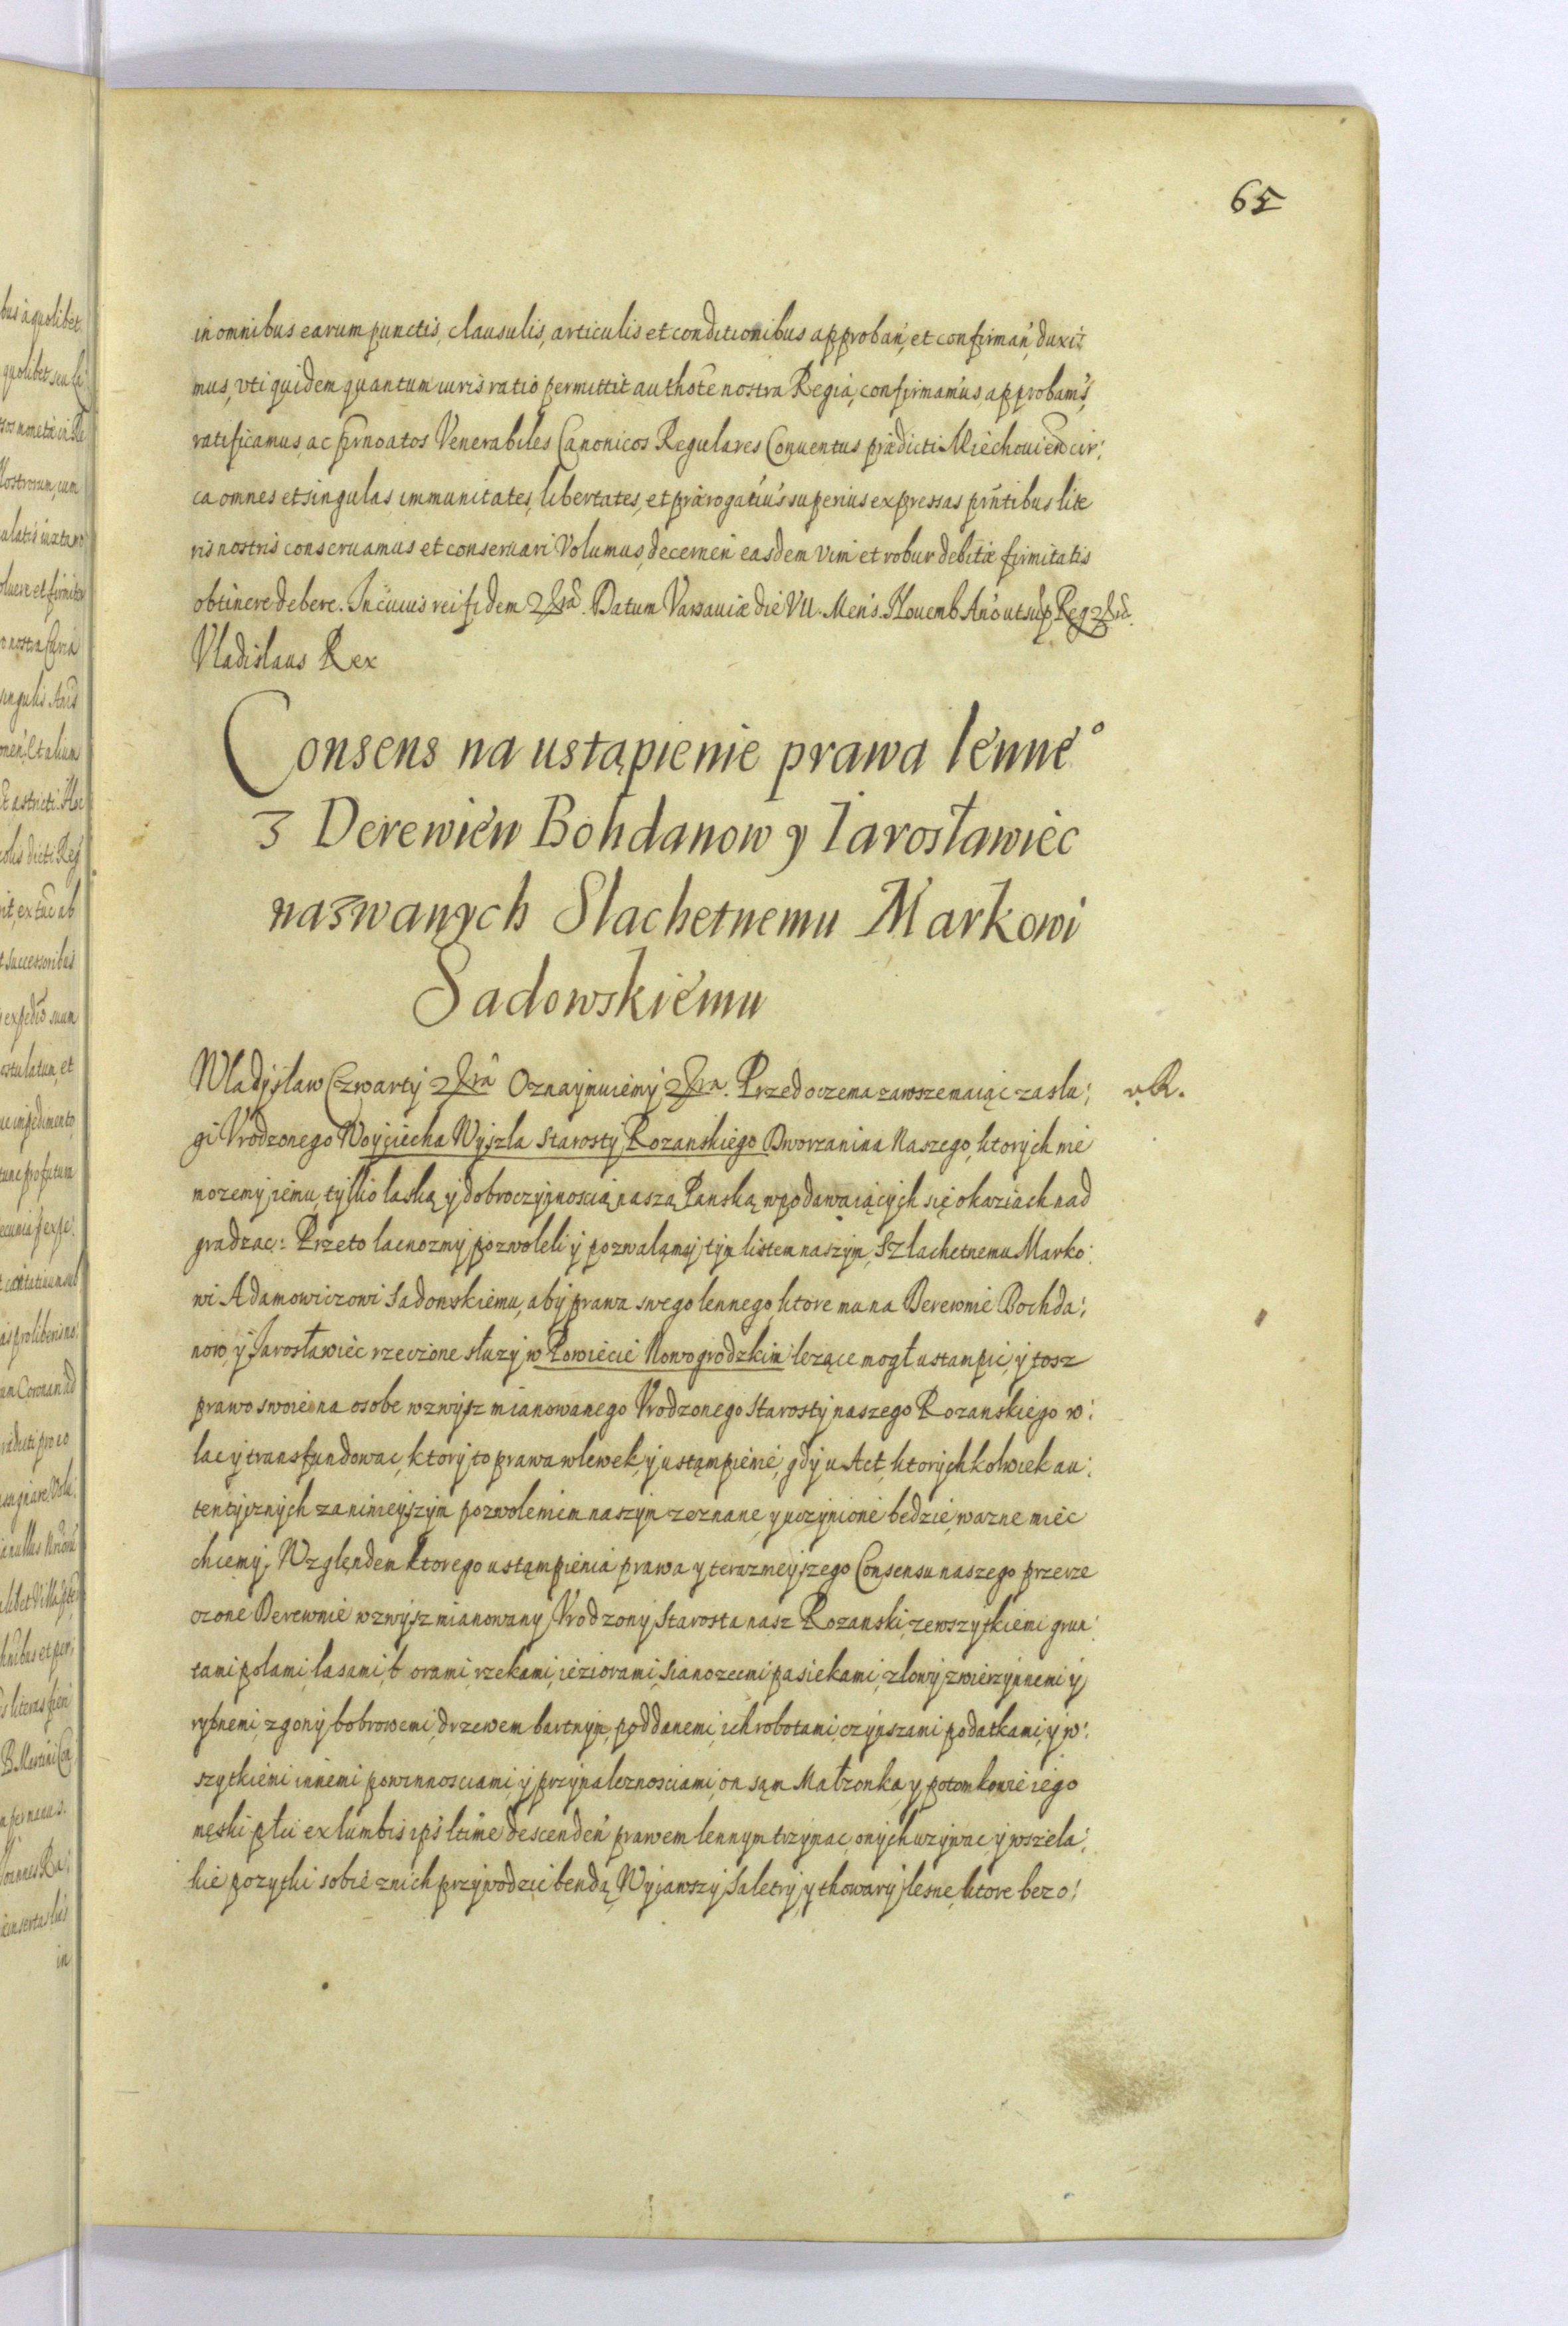 65
in omnibus earum punctis, clausulis, articulis et conditionibus approbań, et confirmań, duxi:
mus, vti quidem quantum iuris ratio permittit authoŧe nostra Regia, confirmamus, approbam's,
ratificamus, ac pŕnoatos Venerabiles Canonicos Regulares Conuentus prædicti Miechouien cir:
ca omnes et singulas immunitates, libertates, et prærogatiu's superius expressas pŕntibus lite
ris nostris conseruamus et conseruari Volumus, decerneń easdem vim et robur debitæ firmitatis
obtinere debere. In cuius rei fidem &ra. Datum Varsauiæ die VII. Mens. Nouemb. Año ut sup Reg
Vladislaus Rex
Consens na ustąpienie prawa lenne°
z Derewień Bohdanow y Jarosławiec
nazwanych Slachetnemu Markowi
Sadowskiemu
Władysław Czwarty &ra Oznaymuiemy &ra. Przed oczema zawsze maiąc zasłu:
gi Vrodzonego Woyciecha Wyszla Starosty Rozanskiego Dworzanina Naszego, ktorych nie
mozemy iemu, tylko łaską y dobroczynnoscią naszą Panską, w podawaiących się okaziach nad
gradzac: Przeto łacnozmy pozwoleli y pozwalamy tym listem naszym, Szlachetnemu Marko:
wi Adamowiczowi Sadowskiemu, aby prawa swego lennego, ktore mu na Derewnie Bochda:
now, y Jarosławiec rzeczone słuzy w Powiecie Nowogrodzkim lezące mogł ustampic, y tosz
prawo swoie na osobe wzwysz mianowanego Vrodzonego Starosty naszego Rozanskiego w:
lac y transfundowac, ktory to prawa wlewek, y ustąmpienie, gdy u Act, ktorychkolwiek au:
tentycznych za ninieyszym pozwoleniem naszym zeznane, y uczynione bedzie, wazne miec
chcemy, Względem ktorego ustąmpienia prawa y terazneyszego Consensu naszego przerze
czone Derewnie wzwysz mianowany Vrodzony Starosta nasz Rozanski, ze wszytkiemi grun:
tami polami, lasami, b orami, rzekami, ieziorami, Sianozeciemi pasiekami, złowy zwierzynnemi y
rybnemi, z gony bobrowemi, drzewem bartnym, poddanemi, ich robotami, czynszami podatkami, y w:
szytkiemi innemi powinnosciami, y przynaleznosciami, on sąm Małzonka, y potomkowie iego
męski płci ex lumbis ips' ltime descendeń prawem lennym trzymac, onych uzywac, y wszela:
kie pozytki sobie z nich przywodzic bendą, Wyiawszy Saletry, y thowary lesne, ktore bez o: